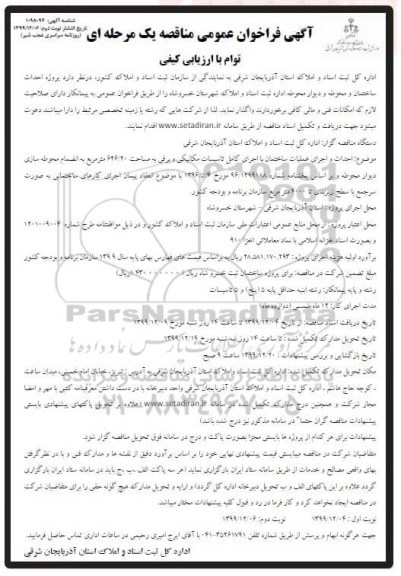 شناسه آگهی: ۱۰۹۸۰۹۴
تاریخ انتشار نوبت دوم: ۱۳۹۹/۱۲/۰۶
(روزنامه سراسری عجب شیر)
آگهی فراخوان عمومی مناقصه یک مرحله ای
توام با ارزیابی کیفی
اداره کل ثبت اسناد و املاک استان آذربایجان شرقی به نمایندگی از سازمان ثبت اسناد و املاک کشور، درنظر دارد پروژه احداث
ساختمان و محوطه و دیوار محوطه اداره ثبت اسناد و املاک شهرستان خسروشاه را از طریق فراخوان عمومی به پیمانکار دارای صلاحیت
لازم که امکانات فنی و مالی کافی برخوردارند واگذار نماید. لذا از شرکت هایی که رشته یا زمینه تخصصی مرتبط را دارا میباشند دعوت
میشود جهت دریافت و تکمیل اسناد مناقصه از طریق سامانه www.setadiran.ir اقدام نمایند.
دستگاه مناقصه گزار: اداره کل ثبت اسناد و املاک استان آذربایجان شرقی
موضوع: احداث و اجرای عملیات ساختمان با اجرای کامل تاسیسات مکانیکی و برقی به مساحت ۶۲۶/۲۰ مترمربع به انضمام محوطه سازی
دیوار محوطه و بر اساس بخشنامه شماره ۹۶/۱۲۹۹۱۸۸ مورخ ۱۳۹۶/۰۵/۰۴ با موضوع انعقاد پیمان اجرای کارهای ساختمانی به صورت
سرجمع با سطح زیربنای تا ۴۰۰۰ متر مربع سازمان برنامه و بودجه کشور.
محل اجرای پروژه: استان آذربایجان شرقی - شهرستان خسروشاه
محل اعتبار پروژه: از محل منابع عمومی اعتبارات ملی سازمان ثبت اسناد و املاک کشور و در ذیل موافقتنامه طرح شماره
و بصورت اسناد خزانه اسلامی با نماد معاملاتی اخزا ۹۱۰
برآورد اولیه هزینه اجرای پروژه: ۲۸,۵۸۱,۱۷۰,۲۹۳ ریال بر اساس قیمت های فهارس بهای پایه سال ۱۳۹۹ سازمان برنامه و بودجه کشور
مبلغ تضمین شرکت در مناقصه: برای پروژه ساختمان ثبت خسرو شاه ریال
رشته و پایه پیمانکار: رشته ابنیه حداقل پایه ۵ (پنج) و ۵ تاسیسات
مدت اجرای کار: ۱۲ ماه شمسی (دوازده ماه)
تاریخ دریافت اسناد مناقصه: از تاریخ ۱۳۹۹/۱۲/۰۴ تا ساعت ۱۴ روز شنبه مورخ ۱۳۹۹/۱۲/۰۹
تاریخ تحویل مدارک تکمیل شده: تا ساعت ۱۴ روز سه شنبه مورخ ۱۳۹۹/۱۲/۱۹
تاریخ بازگشایی و بررسی پیشنهادات: ۱۳۹۹/۱۲/۲۰ ساعت ۹ صبح
مکان تحویل مدارک تکمیل شده: اداره کل ثبت اسناد و املاک استان آذربایجان شرقی به آدرس: تبریز، خیابان امام خمینی، میدان ساعت
، کوچه حاج هاشم ، اداره کل ثبت اسناد و املاک استان آذربایجان شرقی واحد دبیرخانه با در دست داشتن معرفینامه کتبی با مهر و امضا
مجاز شرکت و همچنین درج مدارک تکمیل شده در سامانه www.setadiran.ir (علاوه بر تحویل پاکتهای پیشنهادی بایستی
پیشنهادات مناقصه گران حتما" در سامانه مذکور نیز درج شده باشد)
پیشنهادات برای هر کدام از پروژه ها بایستی مجزا بصورت پاکت و درج در سامانه فوق تحویل مناقصه گزار شود.
متقاضیان شرکت در مناقصه میبایستی قیمت پیشنهادی نهایی خود را بر اساس برآورد دقیق از نقشه ها و مدارک فنی و با در نظرگرفتن
بهای واقعی مصالح و خدمات از طریق سامانه ستاد ایران بارگزاری نماید (هر سه پاکت الف ،ب ،ج باید در سامانه ستاد ایران بارگزاری
گردد علاوه بر این پاکتهای الف و ب تحویل دبیرخانه اداره کل گردد) و ارایه و تحویل مدارک هیچ گونه حقی را برای متقاضیان شرکت
در مناقصه ایجاد نخواهد کرد و کارفرما در رد و قبول کلیه پیشنهادات مختار میباشد.
نوبت اول : ۱۳۹۹/۱۲/۰۴ نوبت دوم: ۱۳۹۹/۱۲/۰۶
جهت هرگونه ابهام و پرسش از طریق شماره تلفن ۰۴۱-۳۵۲۶۱۷۹۱ با آقای ایرج امیری رحیمی در ساعات اداری تماس حاصل فرمایید.
اداره کل ثبت اسناد و املاک استان آذربایجان شرقی
ParsNamadData
۰۲۱-۸۸۳۴۹۶۷۰-۵